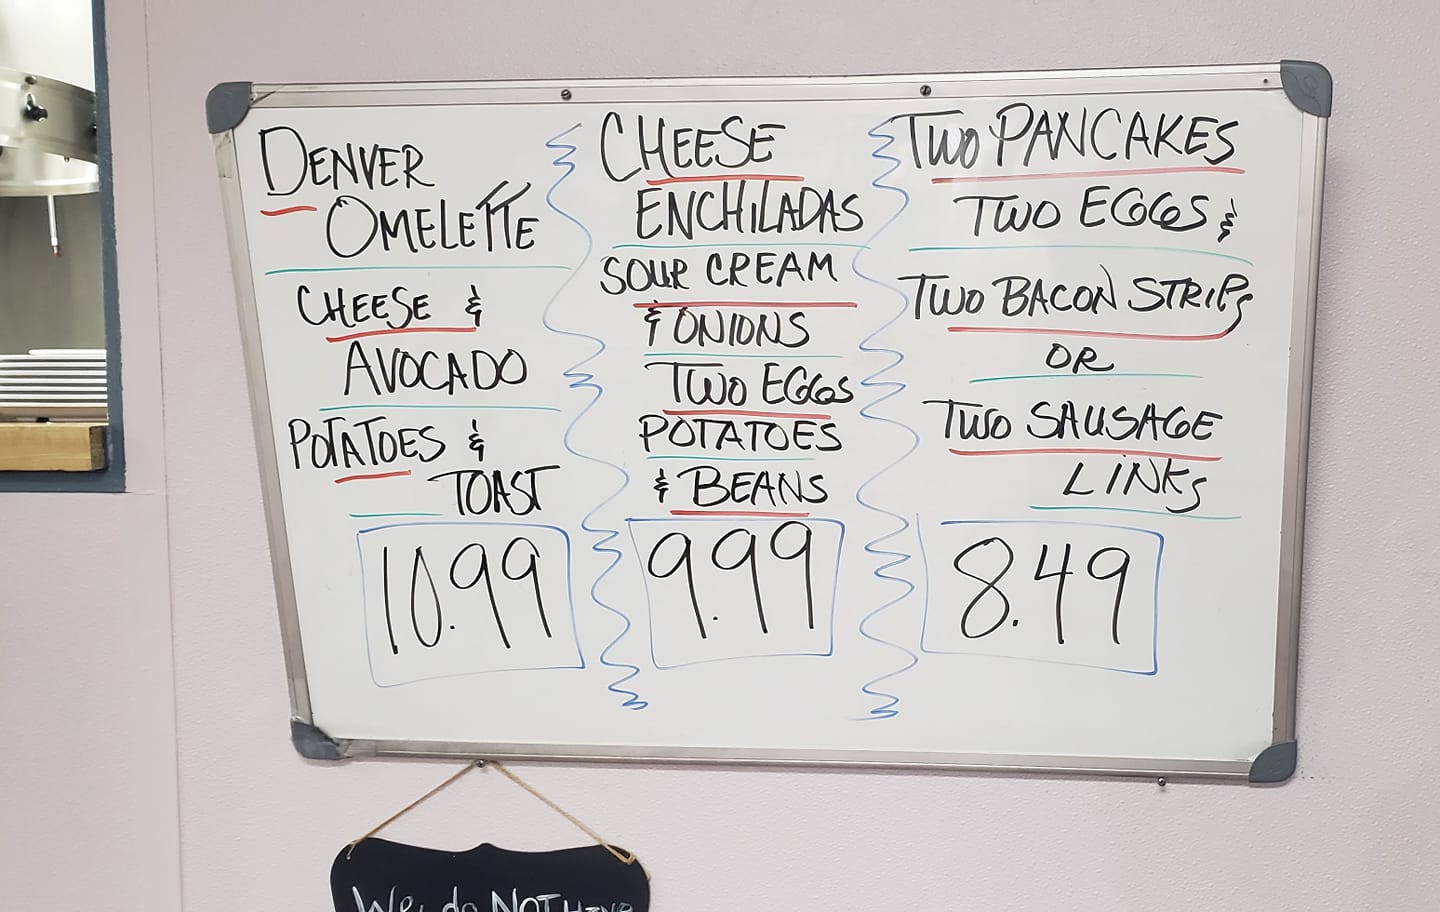 DENVER
OMELETTE
CHEESE &
AVOCADO
POTATOES &
TOAST
10.99
CHEESE
ENCHILADAS
SOUR CREAM
& ONIONS
TWO EGGS
POTATOES
& BEANS
9.99
TWO PANCAKES
TWO EGGS &
TWO BACON STRIPS
OR
TWO SAUSAGE
LINKS
8.49
We do NOTHING